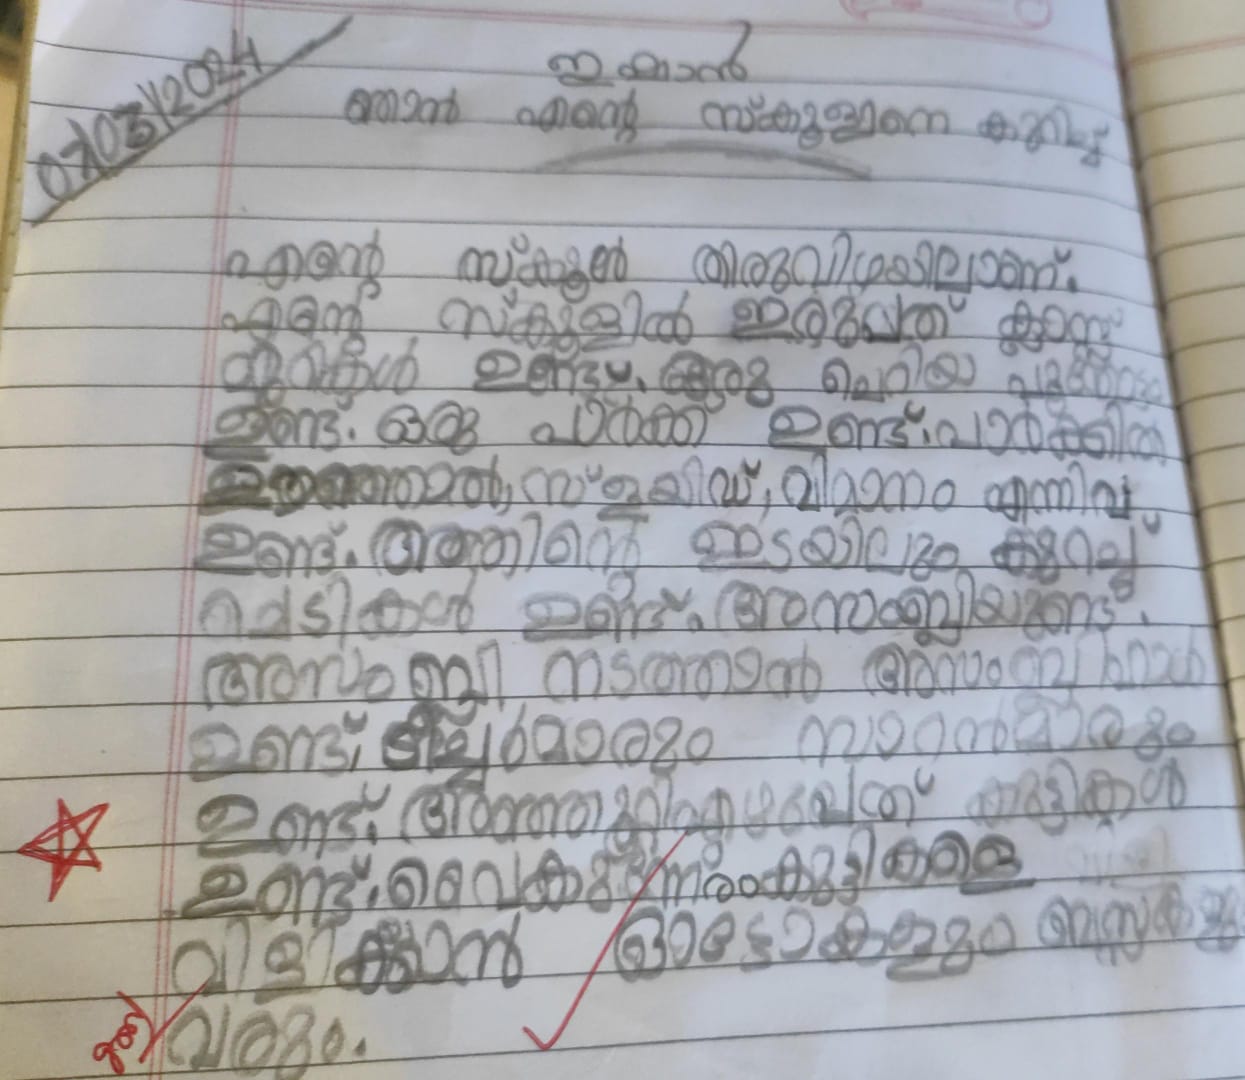 07/03/2024
ഇ കാൻ
ഞാൻ എന്റെ സ്കൂളിനെ കുറിച്ച്
എന്റെ സ്കൂൾ തിരുവിഴയിലാണ്.
എന്റെ സ്കൂളിൽ ഇരുപത് ക്ലാസ്സ്
മുറികൾ ഉണ്ട്. ഒരു ചെറിയ
ഉണ്ട്. ഒരു പാർക്ക് ഉണ്ട്. പാർക്കിൽ
ഊഞ്ഞാൽ, സ്ളയിഡ്, വിമാനം എന്നിവ
ഉണ്ട്. അതിന്റെ ഇടയിലും കുറച്ച്
ചെടികൾ ഉണ്ട്. അസംബ്ലിയുമുണ്ട്.
അസംബ്ലി നടത്താൻ അസംബ്ലി ഹാൾ
ഉണ്ട്. ടീച്ചർമാരും സാറൻമാരും
ഉണ്ട്. കുട്ടികൾ
ഉണ്ട്. വൈകുന്നേരം കുട്ടികളെ
വിളിക്കാൻ ഓട്ടോകളും ബസ്സുകളും
വരും.